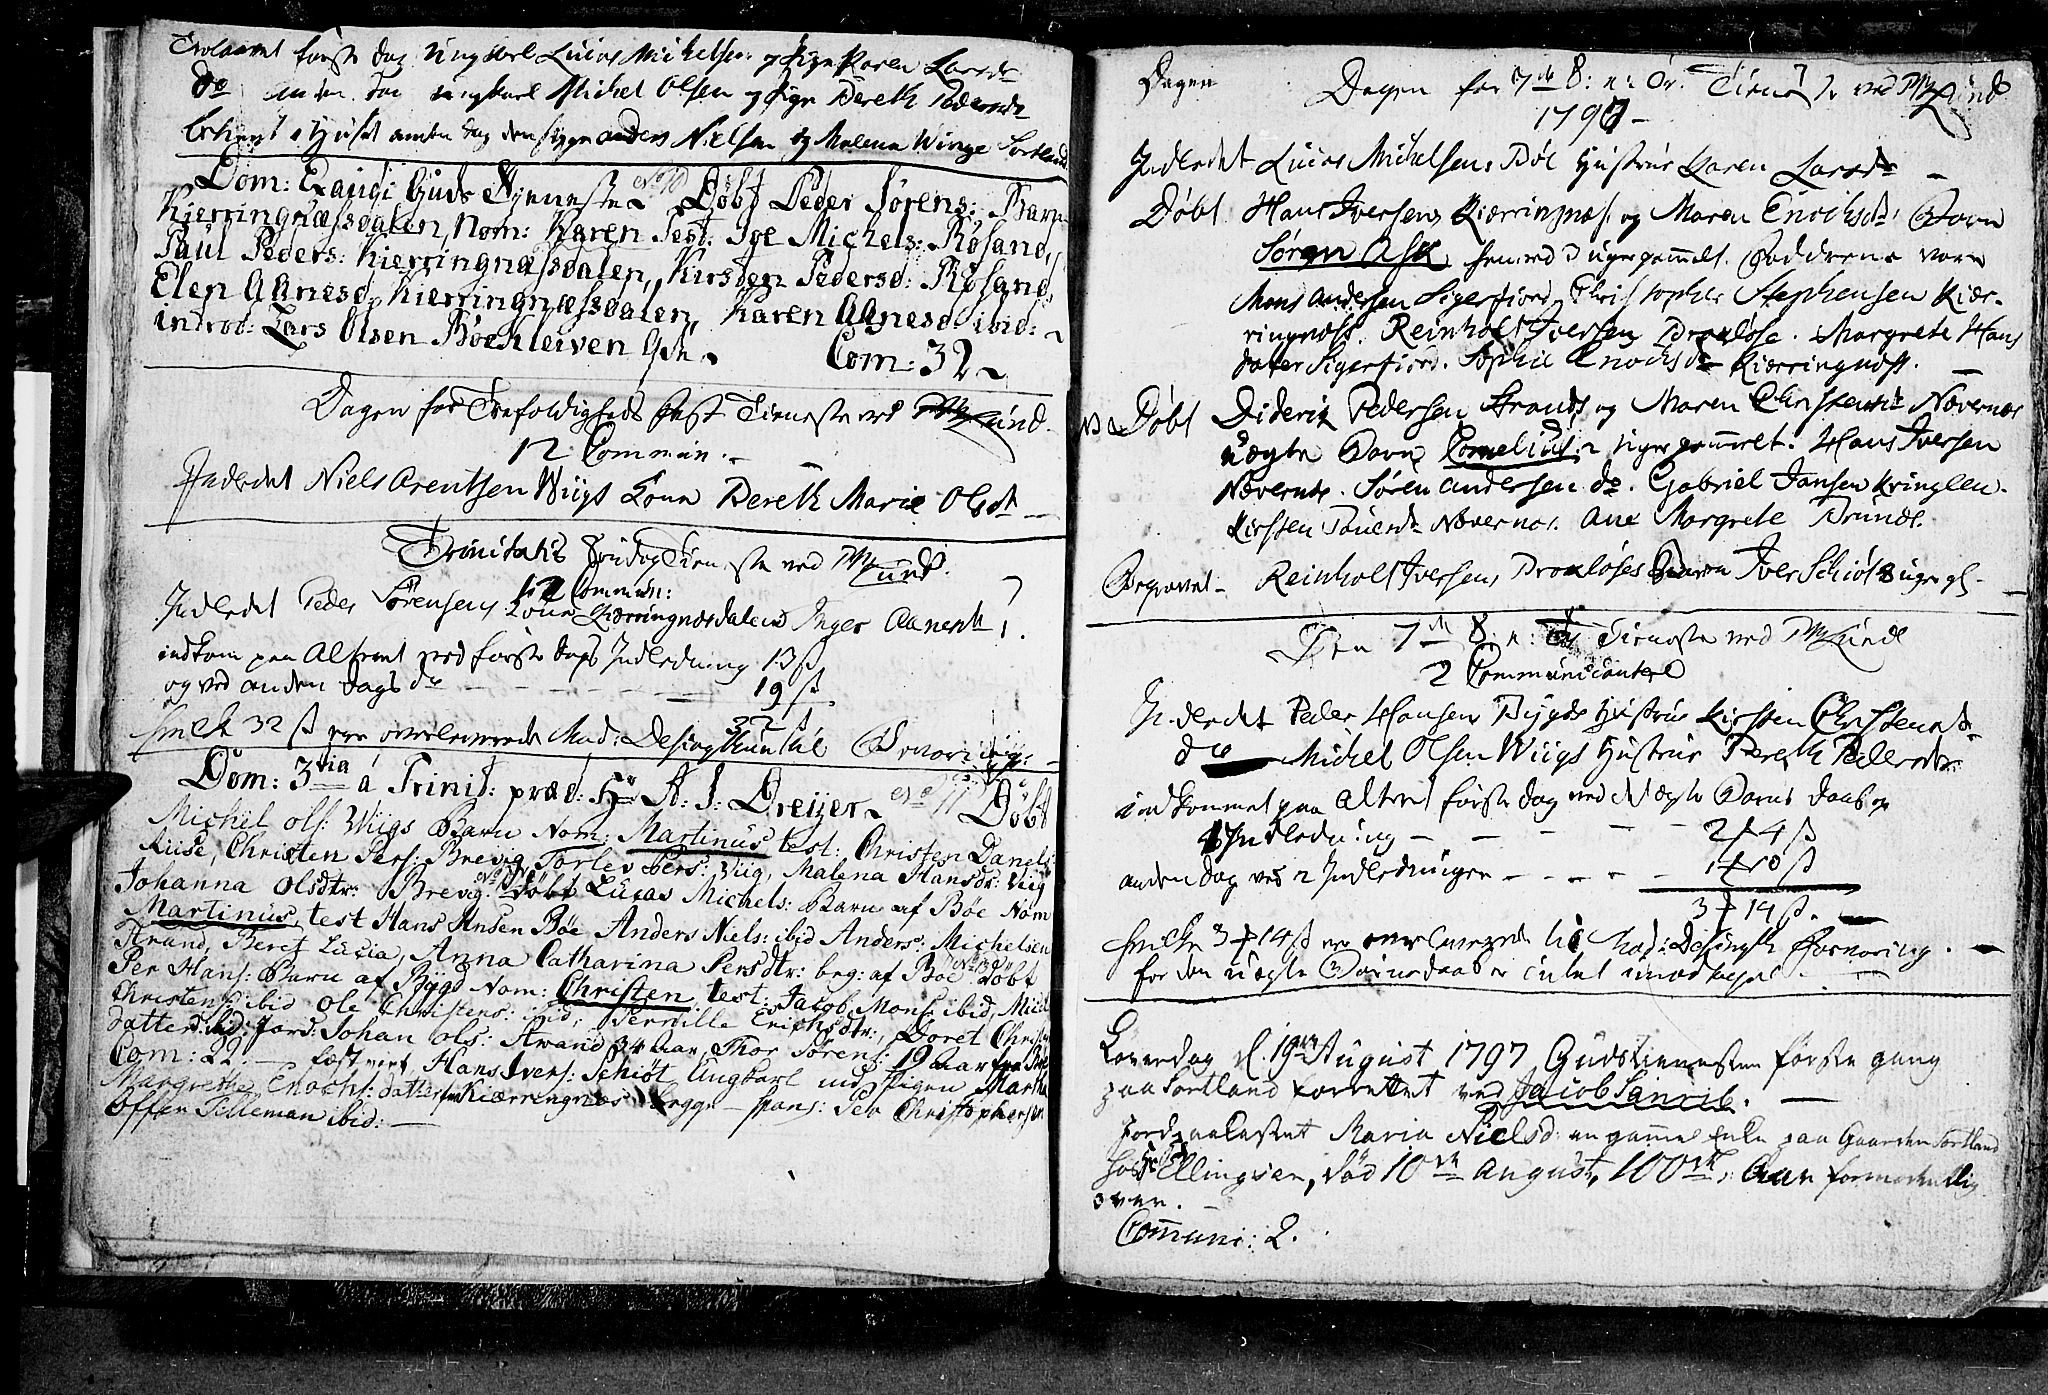 Trolovet første dag Ungkarl Lucas Michelsen og Pige Karen Larsdr
do anden dag ungkarl Michel Olsen og Pige Bereth Pedersdr
anden dag Anders Nielsen og Malena Winge Sortland
Dom: Exaudi Guds Tjeneste No 10 Døbt Peder Sørens: Barn
Kierringnæssdalen, Nom: Karen Test: Ive Michels: Røsand,
Paul Peders: Kierringnæssdalen, Kirsten Pedersd: Røsand,
Elen Aanesd. Kierringnæssdalen, Karen Aanesd. ibid:
introd: Lars Olsen Bøckleiven
Com: 32
Dagen for Trefoldigheds Fest Tieneste ved Lund.
12 Commun.
Indledet Niels Arentsen Wiigs Kone Bereth Marie Olsdt
Trinitatis Søndag Tieneste ved Lund.
12 Commun:
Indledet Peder Sørensens Kone Kierringnæsdalen Inger Aanesdt
indkom paa Alteret ved første dags Indledning 13 ß
og ved anden dags do - - - 19 ß
32 ß
hvilke 32 ß ere overleverede Mad: Desingthun til Forvaring
Dom: 3tia á Trinit: præd: Hr A: J: Dreyer No 11 Døbt
Michel Ols: Wiigs Barn Nom: Martinus test: Christen Danels:
Christen Pers: Brevig, Torlev Pers: Viig, Malena Hansdr: Viig
Johanna Olsdtr: Brevig. No 12 Døbt Lucas Michels: Barn af Bøe Nom
Martinus, test Hans Ansen Bøe, Anders Niels: ibid Anders: Michelsen
Strand, Beret Lucia, Anna Catharina Persdtr: beg: af Bøe No 13 Døbt
Per Hans: Barn af Bygd Nom: Christen, test: Jacob Mons: ibid,
Christens: ibid Ole Christens: ibid, Pernille Erichsdtr:, Doret
datter ibid: Jord: Johan Ols: Strand 34 Aar, Thor Sørens: 19 Aar fra
Com: 22. - Hans Ivers: Schiøt Ungkarl med Pigen Martha
Margrethe Enochs: datter fra Kierringnæs begge - spons: Per Christophersen
Offen Tilleman ibid: -
Dagen
Dagen for 7de S: n: Tr. Tieneste ved Lund
1797 -
Indledet Lucas Michelsens Bøe Hustrue Karen Larsdr -
Døbt Hans Iversens Kierringnæs og Maren Enochsdr Barn
Søren Ask 3 uger gammelt. Fadderne vare
Mons Andersen Sigerfiord, Christopher Stephensen Kier-
ringnæss. Reinholt Iversen Broxløse. Margrete Hans
dater Sigerfiord. Sophie Enochsdr Kierringnæss.
Døbt Diderik Pedersen Strands og Maren Christensdr Nævernæs
uægte Barn Cornelius uger gammelt. Hans Iversen
Nævernæs. Søren Andersen do. Gabriel Jansen Kringlen.
Kirsten Nævernæs. Ane Margrete
Begravet - Reinholt Iversens Broxløses Barn Iver Schiøt 8 uger gl. -
Den 7de S: n: Tr Tieneste ved Lund
2 Communicantere
Indledet Peder Hansens Bygds Hustrue Kirsten Christensdr
do Michel Olsen Wiigs Hustrue Bereth Pedersdr
indkommet paa Alteret første dag ved det ægte Barns daab og
1 Indledning - - - - 2 4 ß
anden dag ved 2 Indledninger - - - - 1 10 ß
3 14 ß.
hvilke 3 14 ß ere overleverede til Mad: Desingth Forvaring.
for den uægte Barnedaab er intet imodtaget. -
Løverdag d. 19de August 1797 Gudstienesten første gang
paa Sortland forrettet ved Jacob Lanrib. -
Jordpaakastet Maria Nielsd: en gammel Enke paa Gaarden Sortland
hos Ellingsen, død 10de August, 100de, Aar formodentlig
over.
Communi: 2.